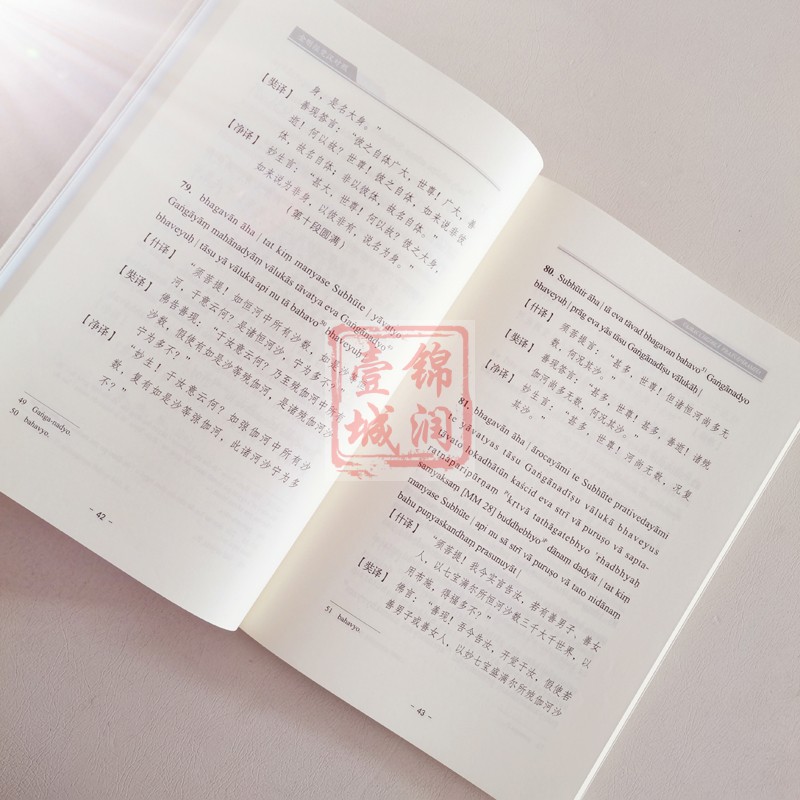 身，是名大身。”
【奘译】 善现答言：“彼之自体广大，世尊！广大，善
逝！何以故？世尊！彼之自体，如来说非彼
体，故名自体；非以彼体，故名自体。”
【净译】 妙生言：“甚大，世尊！何以故？彼之大身，
如来说为非身，以彼非有，说名为身。”
（第十段圆满）
79. bhagavān āha | tat kiṃ manyase Subhūte | yāvatyo
Gaṅgāyāṃ mahānadyāṃ vālukās tāvatya eva Gaṅgānadyo49
bhaveyuḥ | tāsu yā vālukā api nu tā bahavo50 bhaveyuḥ |
【什译】 “须菩提！如恒河中所有沙数，如是沙等恒
河，于意云何？是诸恒河沙，宁为多不？”
【奘译】 佛告善现：“于汝意云何？乃至殑伽河中所有
沙数，假使有如是沙等殑伽河，是诸殑伽河沙
宁为多不？”
【净译】 “妙生！于汝意云何？如弶伽河中所有沙
数，复有如是沙等弶伽河，此诸河沙宁为多
不？”
49 Gaṅga-nadyo.
50 bahavyo.
- 42 -
80. Subhūtir āha | tā eva tāvad bhagavan bahavo51 Gaṅgānadyo
bhaveyuḥ | prāg eva yās tāsu Gaṅgānadīṣu vālukāḥ |
【什译】 须菩提言：“甚多，世尊！但诸恒河尚多无
数，何况其沙。”
【奘译】 善现答言：“甚多，世尊！甚多，善逝！诸殑
伽河尚多无数，何况其沙。”
【净译】 妙生言：“甚多，世尊！河尚无数，况复
其沙。”
81. bhagavān āha | ārocayāmi te Subhūte prativedayāmi
te yāvatyas tāsu Gaṅgānadīṣu vālukā bhaveyus
tāvato lokadhātūn kaścid eva strī vā puruṣo vā sapta-
ratnaparipūrṇaṃ kṛtvā tathāgatebhyo 'rhadbhyaḥ
samyaksaṃ [MM 28] buddhebhyo dānaṃ dadyāt | tat kiṃ
manyase Subhūte | api nu sā strī vā puruṣo vā tato nidānaṃ
bahu puṇyaskandhaṃ prasunuyāt |
【什译】 “须菩提！我今实言告汝，若有善男子、善女
人，以七宝满尔所恒河沙数三千大千世界，以
用布施，得福多不？”
【奘译】 佛言：“善现！吾今告汝，开觉于汝，假使若
善男子或善女人，以妙七宝盛满尔所殑伽河沙
51 bahavyo.
- 43 -
锦润
壹城